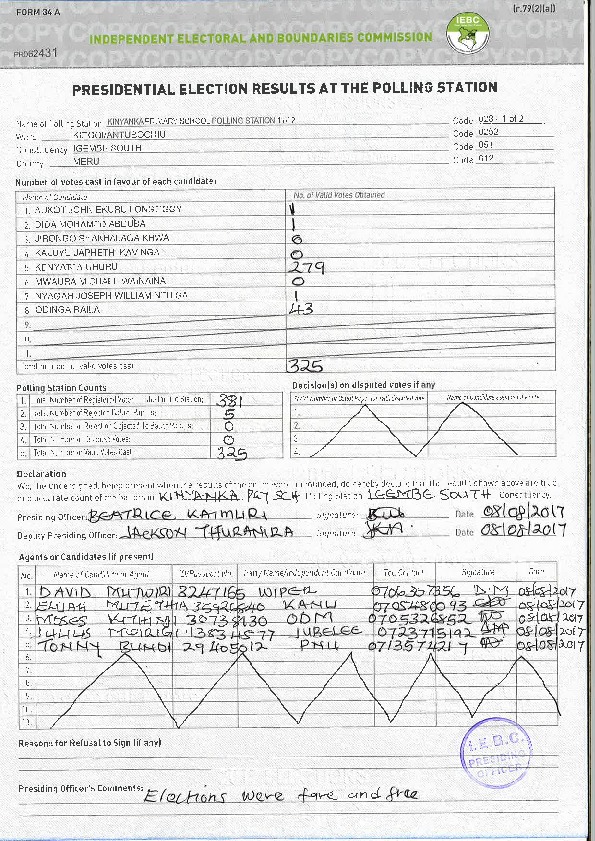 FORM 34 A
(r.79(2)(a))
INDEPENDENT ELECTORAL AND BOUNDARIES COMMISSION
IEBC
COPY
2431
PRESIDENTIAL ELECTION RESULTS AT THE POLLING STATION
Name of Polling Station KINYANKA PRIMARY SCHOOL POLLING STATION 1 of 2 Code 028 - 1 of 2
Ward Code 0262
Constituency IGEMBE SOUTH Code 051
County MERU Code 012
Number of votes cast in favour of each candidate
Name of Candidate No. of Valid Votes Obtained
1. AUKOT JOHN EKURU LONGOGGY 1
2. DIDA MOHAMED ABDUBA 1
3. JIRONGO SHAKHALAGA KHWA 0
4. KALUYU JAPHETH KAVINGA 0
5. KENYATTA UHURU 279
6. MWAURA MICHAEL WAINAINA 0
7. NYAGAH JOSEPH WILLIAM NTHIGA 1
8. ODINGA RAILA 43
9.
Total number of valid votes cast 325
Polling Station Counts
Decision(s) on disputed votes if any
1. Total Number of Registered Voters in the Polling Station: 381
2. Total Number of Rejected Ballot Papers: 5
3. 0
4. Total Number of Disputed Votes: 0
5. Total Number of Valid Votes Cast 325
Declaration
We, the undersigned, being present when the results of the count were announced, do hereby declare that the results shown above are true
and accurate count of the ballots in KINYANKA PRY SCH Polling Station IGEMBE SOUTH Constituency.
Presiding Officer: BEATRICE KAIMURI Signature: Date 08/08/2017
Deputy Presiding Officer: JACKSON THURANIRA Signature: Date 08/08/2017
Agents or Candidates (if present)
No. Name of Candidate or Agent ID/Passport No. Party Name/Independent Candidate Tel. Contact Signature Date
1. DAVID MUTWIRI 3247165 WIPER 0706307356 D.M 08/08/2017
2. ELIJAH MUTETHIA KANU 08/08/2017
3. MOSES 30738130 ODM 0705326852 08/08/2017
4. MWIRIGI JUBELEE 0723715192 08/08/2017
5. TONNY BUNDI 29405012 PNU 08/08/2017
6.
7.
8.
9.
10.
Reasons for Refusal to Sign (if any)
I.E.B.C.
PRESIDING
OFFICER
Presiding Officer's Comments: Elections were fare and free